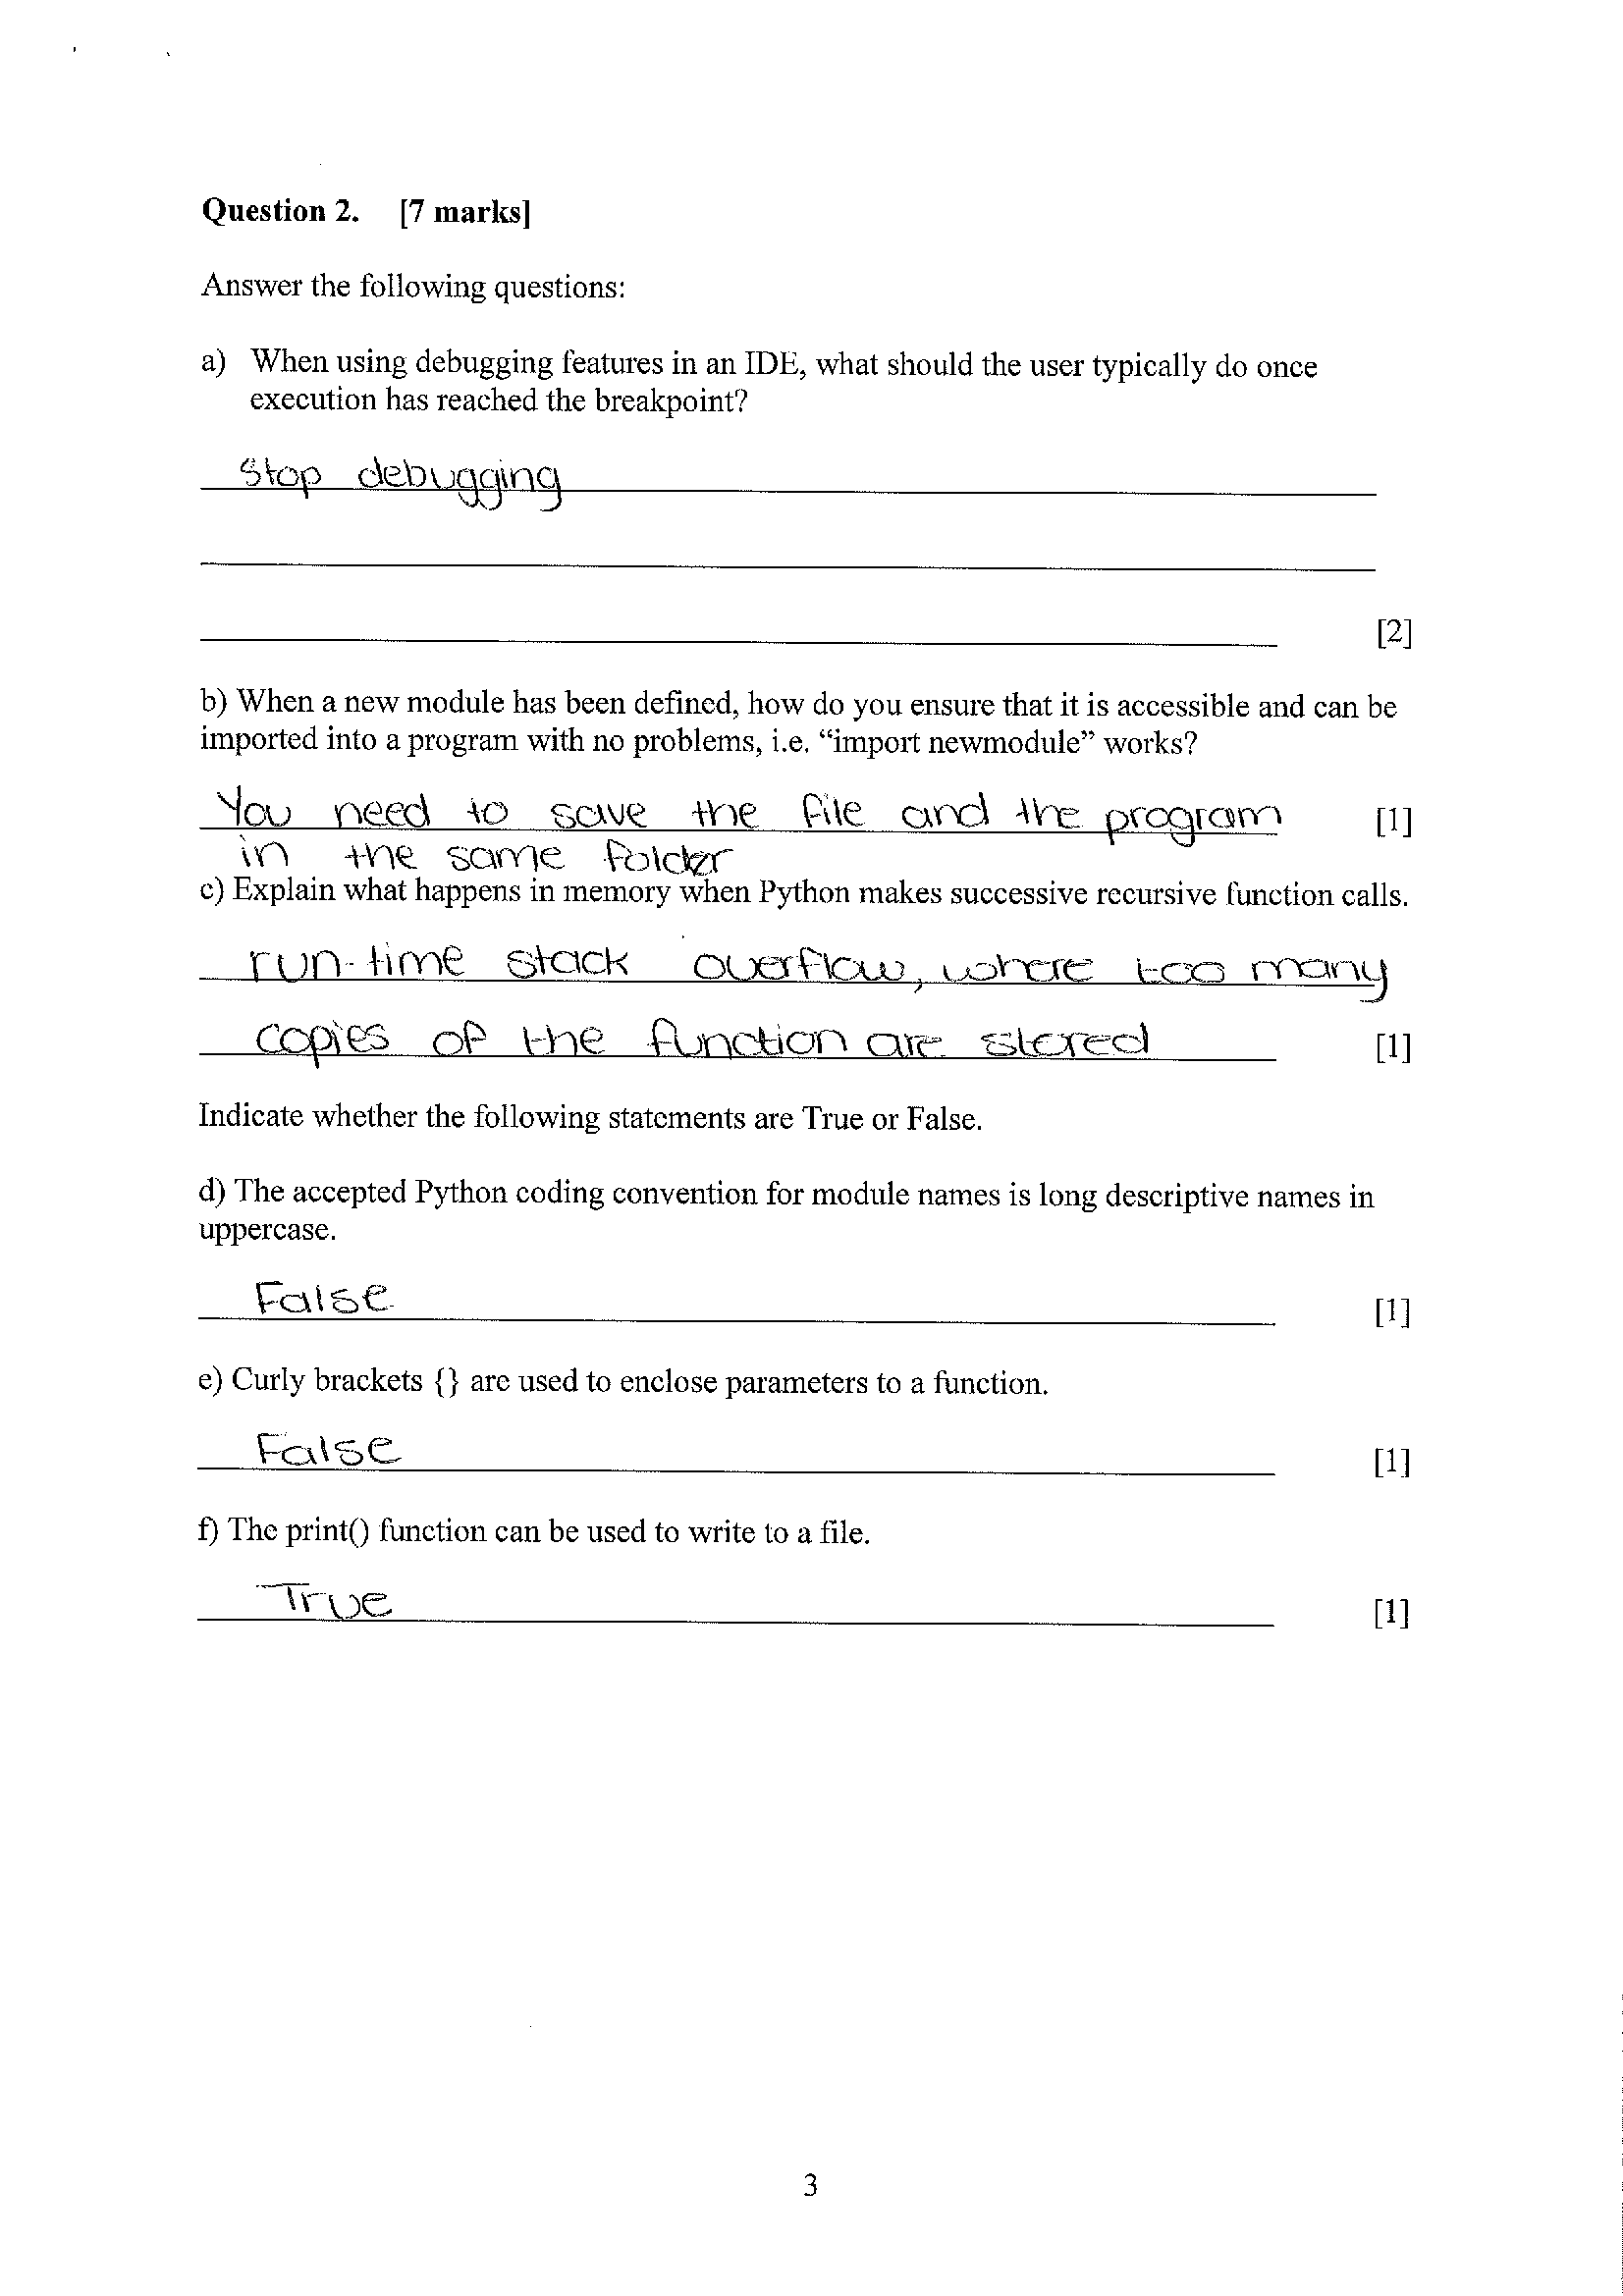 Question 2. [7 marks]
Answer the following questions:
a) When using debugging features in an IDE, what should the user typically do once
execution has reached the breakpoint?
Stop debugging
[2]
b) When a new module has been defined, how do you ensure that it is accessible and can be
imported into a program with no problems, i.e. “import newmodule” works?
You need to save the file and the program [1]
in the same folder
c) Explain what happens in memory when Python makes successive recursive function calls.
run-time stack overflow, where too many
copies of the function are stored [1]
Indicate whether the following statements are True or False.
d) The accepted Python coding convention for module names is long descriptive names in
uppercase.
False [1]
e) Curly brackets {} are used to enclose parameters to a function.
False [1]
f) The print() function can be used to write to a file.
True [1]
3